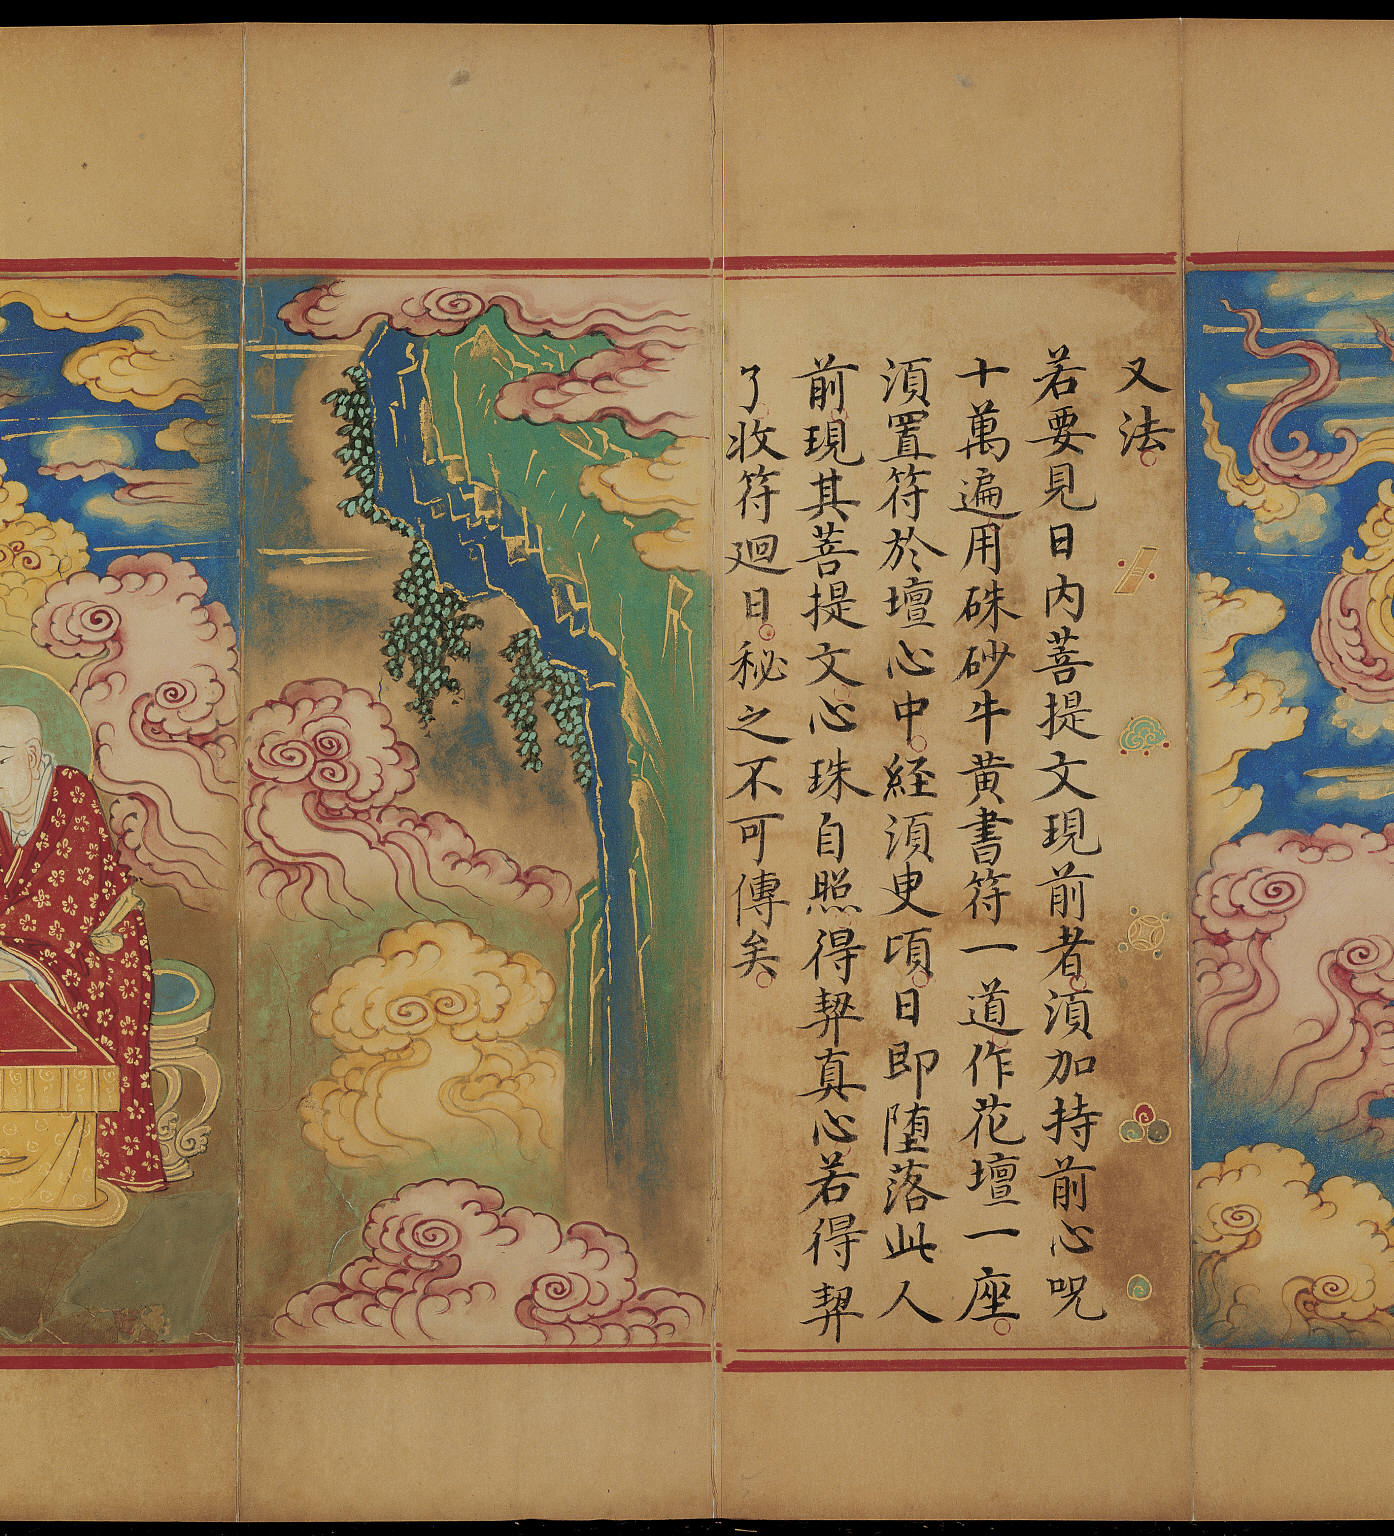 又法
若要見日内菩提文現前者湏加持前心呪
十萬遍用硃砂牛黄書符一道作花壇一座
湏置符於壇心中経湏臾頃日即堕落此人
前現其菩提文心珠自照得契真心若得契
了收符迴日秘之不可傳矣